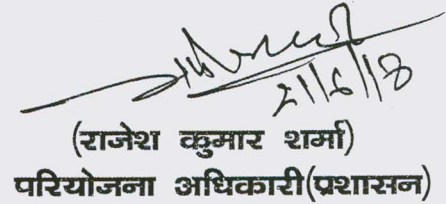 21/6/18
(राजेश कुमार शर्मा)
परियोजना अधिकारी(प्रशासन)